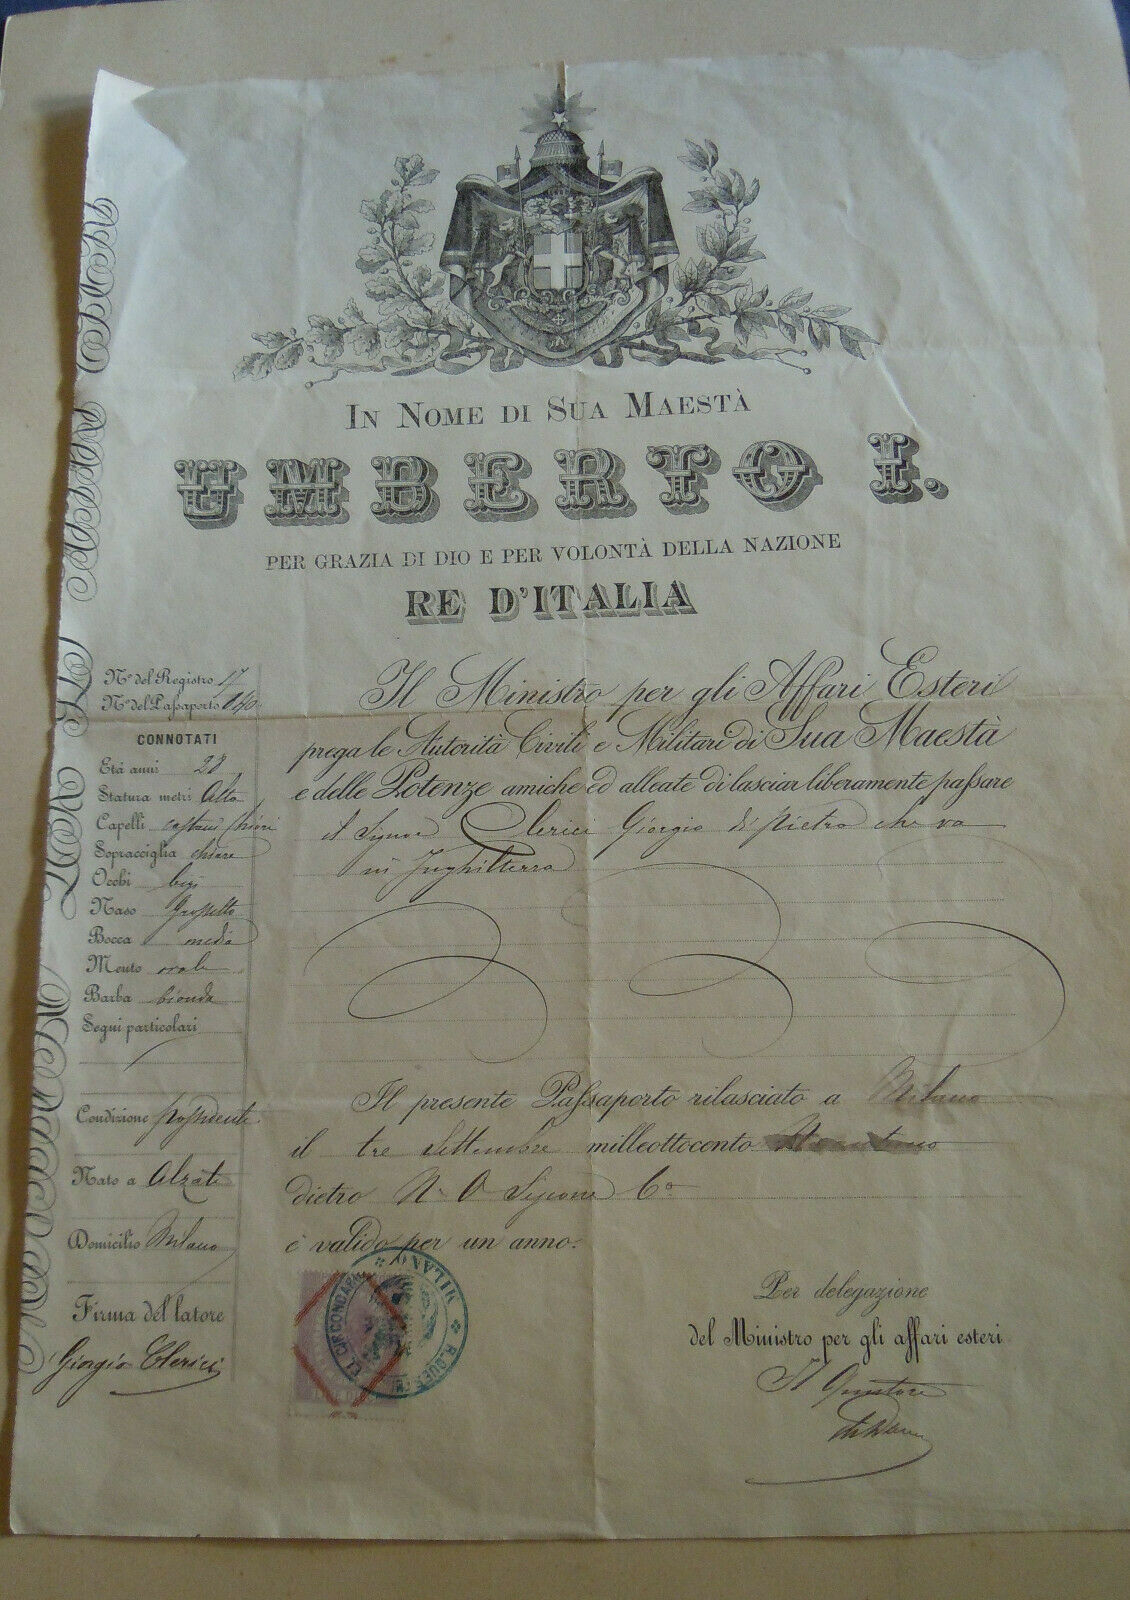 In Nome di Sua Maestà
UMBERTO I.
PER GRAZIA DI DIO E PER VOLONTÀ DELLA NAZIONE
RE D'ITALIA
N.º del Registro 17
N.º del Passaporto 840
CONNOTATI
Età anni 28
Statura metri Alta
Capelli castani chiari
Sopracciglia chiare
Occhi bigi
Naso Grossetto
Bocca media
Mento ovale
Barba bionda
Segni particolari
Condizione possidente
Nato a Alzate
Domicilio Milano
Firma del latore
Giorgio Clerici
Il Ministro per gli Affari Esteri
prega le Autorità Civili e Militari di Sua Maestà
e delle Potenze amiche ed alleate di lasciar liberamente passare
il Signor Clerici Giorgio di Pietro che va
in Inghilterra
Il presente Passaporto rilasciato a Milano
il tre Settembre milleottocento
dietro N. O.
è valido per un anno.
Per delegazione
del Ministro per gli affari esteri
Il Questore
MILANO
CIRCONDAR